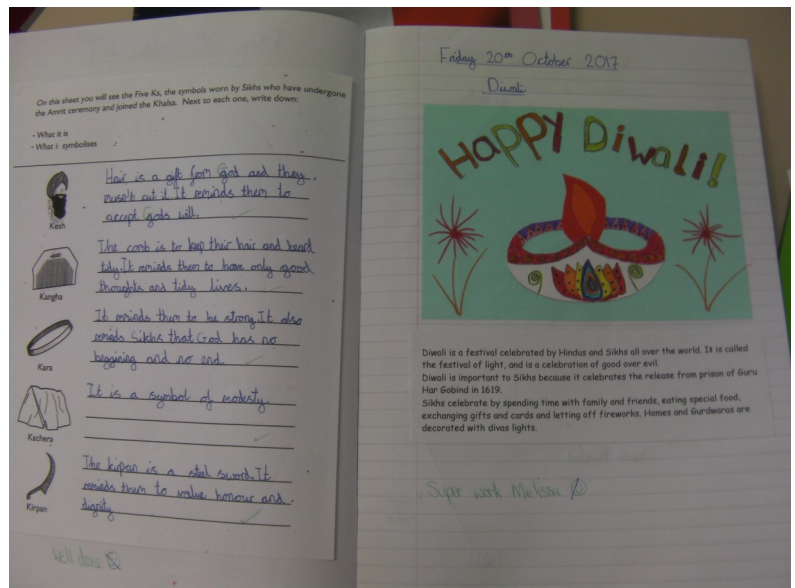 On this sheet you will see the Five Ks, the symbols worn by Sikhs who have undergone
the Amrit ceremony and joined the Khalsa. Next to each one, write down:
• What it is
• What it symbolises
Kesh
Hair is a gift from god and they
musn't cut it. It reminds them to
accept Gods will.
Kangha
The comb is to keep their hair and beard
tidy. It reminds them to have only good
thoughts and tidy lives.
Kara
It reminds them to be strong. It also
reminds Sikhs that God has no
beggining and no end.
Kachera
It is a symbol of modesty
Kirpan
The kirpan is a steel sword. It
reminds them to value honour and
dignity
Well done
Friday 20th October 2017
Diwali
HAPPY Diwali!
Diwali is a festival celebrated by Hindus and Sikhs all over the world. It is called
the festival of light, and is a celebration of good over evil.
Diwali is important to Sikhs because it celebrates the release from prison of Guru
Har Gobind in 1619.
Sikhs celebrate by spending time with family and friends, eating special food,
exchanging gifts and cards and letting off fireworks. Homes and Gurdwaras are
decorated with divas lights.
Super work Melissa